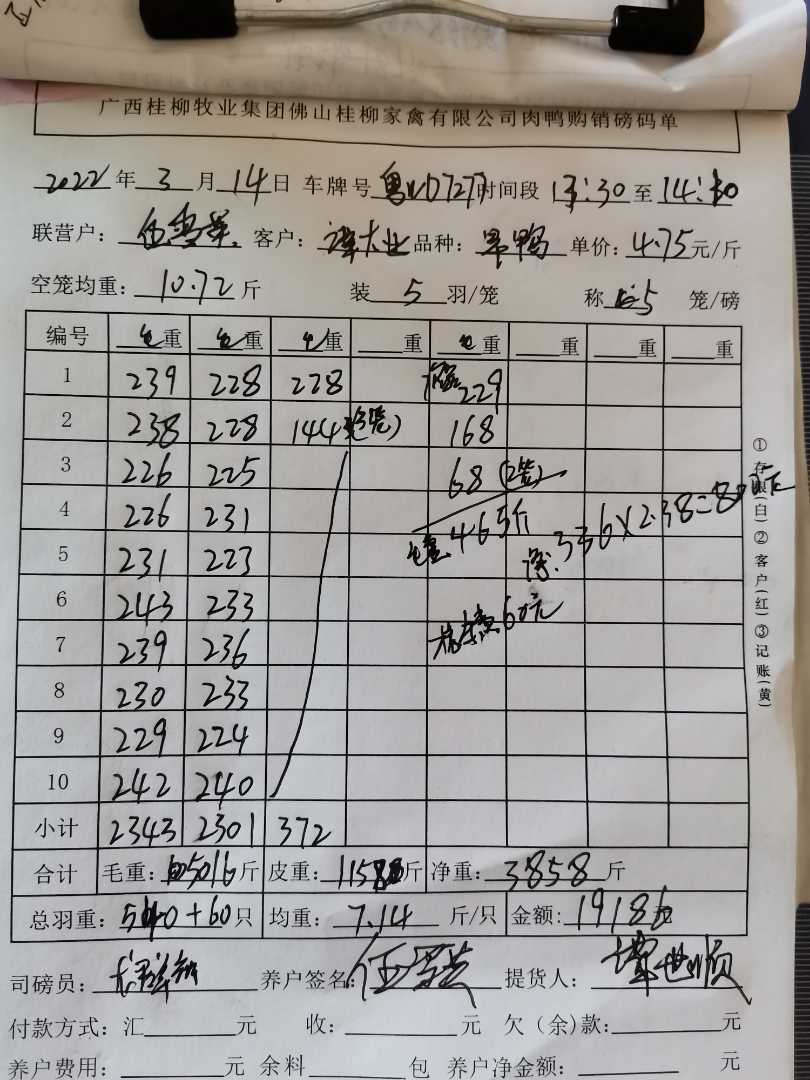 广西桂柳牧业集团佛山桂柳家禽有限公司肉鸭购销磅码单
2022 年 3 月 14 日 车牌号 粤 07277 时间段 13:30 至 14:10
联营户: 客户: 谭大业 品种: 旱鸭 单价: 4.75 元/斤
空笼均重: 10.72 斤 装 5 羽/笼 称 5 笼/磅
编号 毛重 毛重 毛重 重 毛重 重 重 重
1 239 228 228 229
2 238 228 144 (3笼) 168
3 226 225 68 (2笼)
4 226 231 毛重 465斤
5 231 223 净: 336×2.38=800元
6 243 233
7 239 236 60元
8 230 233
9 229 224
10 242 240
小计 2343 2301 372
合计 毛重: 5016 斤 皮重: 1158 斤 净重: 3858 斤
总羽重: 540+60 只 均重: 7.14 斤/只 金额: 19186 元
司磅员: 养户签名: 提货人: 覃世顺
付款方式: 汇 元 收: 元 欠(余)款: 元
养户费用: 元 余料 包 养户净金额: 元
①存根(白)②客户(红)③记账(黄)